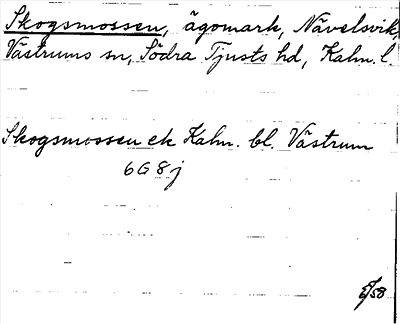 Skogsmossen, ägomark, Nävelsvik,
Västrums sn, Södra Tjusts hd, Kalm. l.
Skogsmossen ek Kalm. bl. Västrum
6G8j
/58